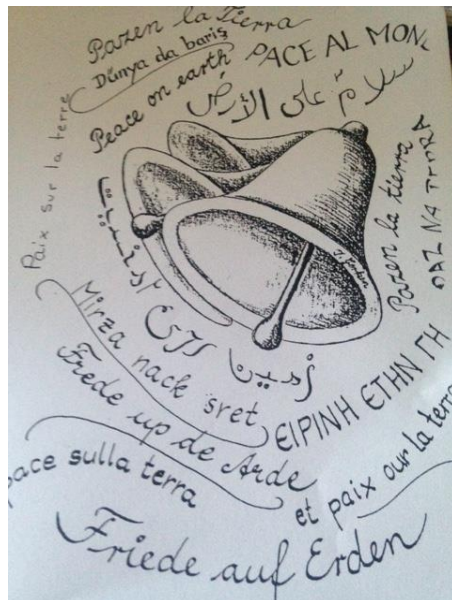 Pazen la Tierra
Dünya da barış
PACE AL MON
Peace on earth
سلامٌ على الأرض
Paix sur la terre
Pazen la tierra
Mirza nack svet
Frede up de Arde
ΕΙΡΙΝΗ ΕΤΗΝ ΓΗ
pace sulla terra
et paix our la terra
Friede auf Erden